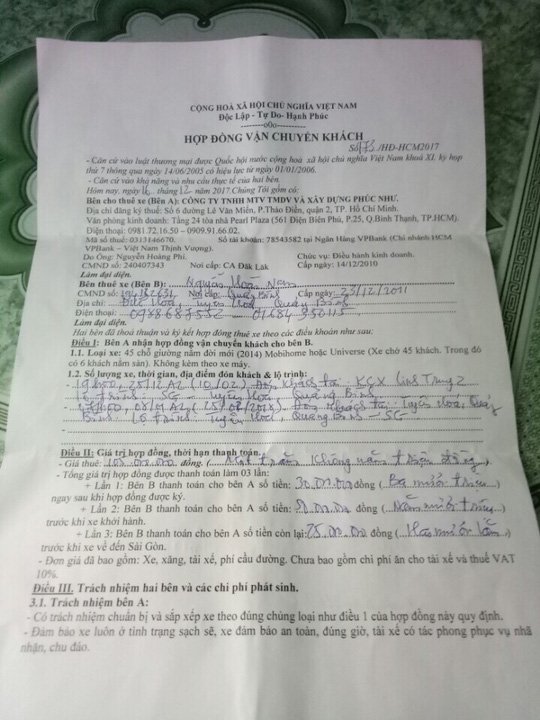 CỘNG HOÀ XÃ HỘI CHỦ NGHĨA VIỆT NAM
Độc Lập - Tự Do- Hạnh Phúc
--------o0o--------
HỢP ĐỒNG VẬN CHUYỂN KHÁCH
/HĐ-HCM2017
- Căn cứ vào luật thương mại được Quốc hội nước cộng hoà xã hội chủ nghĩa Việt Nam khoá XI, kỳ họp
thứ 7 thông qua ngày 14/06/2005 có hiệu lực từ ngày 01/01/2006.
- Căn cứ vào khả năng và nhu cầu thực tế của hai bên.
Hôm nay, ngày 16 tháng 12 năm 2017.Chúng Tôi gồm có:
Bên cho thuê xe (Bên A): CÔNG TY TNHH MTV TMDV VÀ XÂY DỰNG PHÚC NHƯ.
Địa chỉ đăng ký thuế: Số 6 đường Lê Văn Miến, P.Thảo Điền, quận 2, TP. Hồ Chí Minh.
Văn phòng kinh doanh: Tầng 24 tòa nhà Pearl Plaza (561 Điện Biên Phủ, P.25, Q.Bình Thạnh, TP.HCM).
Điện thoại: 0981.72.16.50 – 0909.91.66.02.
Mã số thuế: 0313146670. Số tài khoản: 78543582 tại Ngân Hàng VPBank (Chi nhánh HCM
VPBank – Việt Nam Thịnh Vượng).
Do Ông: Nguyễn Hoàng Phi. Chức vụ: Điều hành kinh doanh.
CMND số: 240407343 Nơi cấp: CA Đăk Lăk Cấp ngày: 14/12/2010
Làm đại diện.
Bên thuê xe (Bên B): Nguyễn Hoài Nam
CMND số: Nơi cấp: Quảng Bình Cấp ngày: 23/12/2011
Địa chỉ: Đức Hoá, Tuyên Hoá, Quảng Bình
Điện thoại: 0988687552 - 01684350115
Làm đại diện.
Hai bên đã thoả thuận và ký kết hợp đồng thuê xe theo các điều khoản như sau:
Điều I: Bên A nhận hợp đồng vận chuyển khách cho bên B.
1.1. Loại xe: 45 chỗ giường nằm đời mới (2014) Mobihome hoặc Universe (Xe chở 45 khách. Trong đó
có 6 khách nằm sàn). Không kèm theo xe máy.
1.2. Số lượng xe, thời gian, địa điểm đón khách & lộ trình:
- 19h00, 25/12 AL (10/02) Đón khách tại KCX Linh Trung 2
Lộ trình: SG - Tuyên Hoá, Quảng Bình
AL (2018) Đón khách tại Tuyên Hoá, Quảng
Bình Lộ trình: Tuyên Hoá, Quảng Bình - SG
Điều II: Giá trị hợp đồng, thời hạn thanh toán.
- Giá thuê: đồng. ( Một trăm không năm triệu đồng )
- Tổng giá trị hợp đồng được thanh toán làm 03 lần:
+ Lần 1: Bên B thanh toán cho bên A số tiền: 30.000.000 đồng ( Ba mươi triệu )
ngay sau khi hợp đồng được ký.
+ Lần 2: Bên B thanh toán cho bên A số tiền: 50.000.000 đồng ( Năm mươi triệu )
trước khi xe khởi hành.
+ Lần 3: Bên B thanh toán cho bên A số tiền còn lại: 25.000.000 đồng ( Hai mươi lăm )
trước khi xe về đến Sài Gòn.
- Đơn giá đã bao gồm: Xe, xăng, tài xế, phí cầu đường. Chưa bao gồm chi phí ăn cho tài xế và thuế VAT
10%.
Điều III. Trách nhiệm hai bên và các chi phí phát sinh.
3.1. Trách nhiệm bên A:
- Có trách nhiệm chuẩn bị và sắp xếp xe theo đúng chủng loại như điều 1 của hợp đồng này quy định.
- Đảm bảo xe luôn ở tình trạng sạch sẽ, xe đảm bảo an toàn, đúng giờ, tài xế có tác phong phục vụ nhã
nhặn, chu đáo.